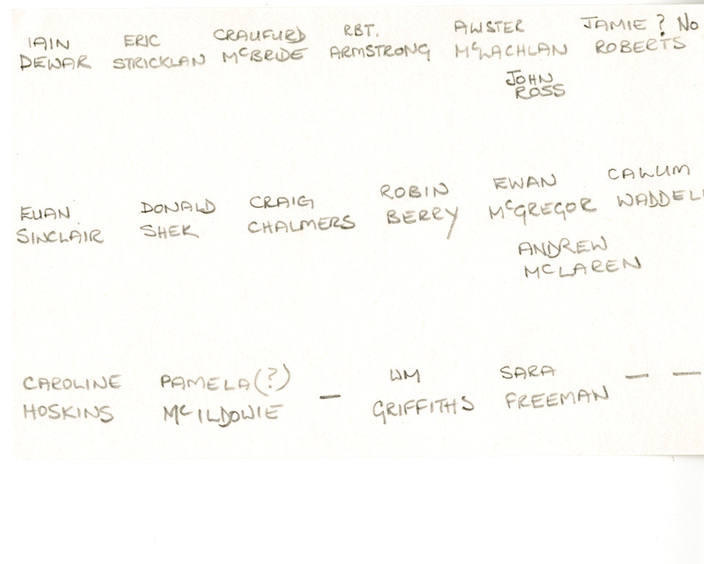 IAIN ERIC CRAUFURD RBT. ALISTER JAMIE ? NO
DEWAR STRICKLAN McBRIDE ARMSTRONG McLACHLAN ROBERTS
JOHN
ROSS
EUAN DONALD CRAIG ROBIN EWAN CALLUM
SINCLAIR SHEK CHALMERS BERRY McGREGOR WADDELL
ANDREW
McLAREN
CAROLINE PAMELA(?) — WM SARA — —
HOSKINS McILDOWIE GRIFFITHS FREEMAN